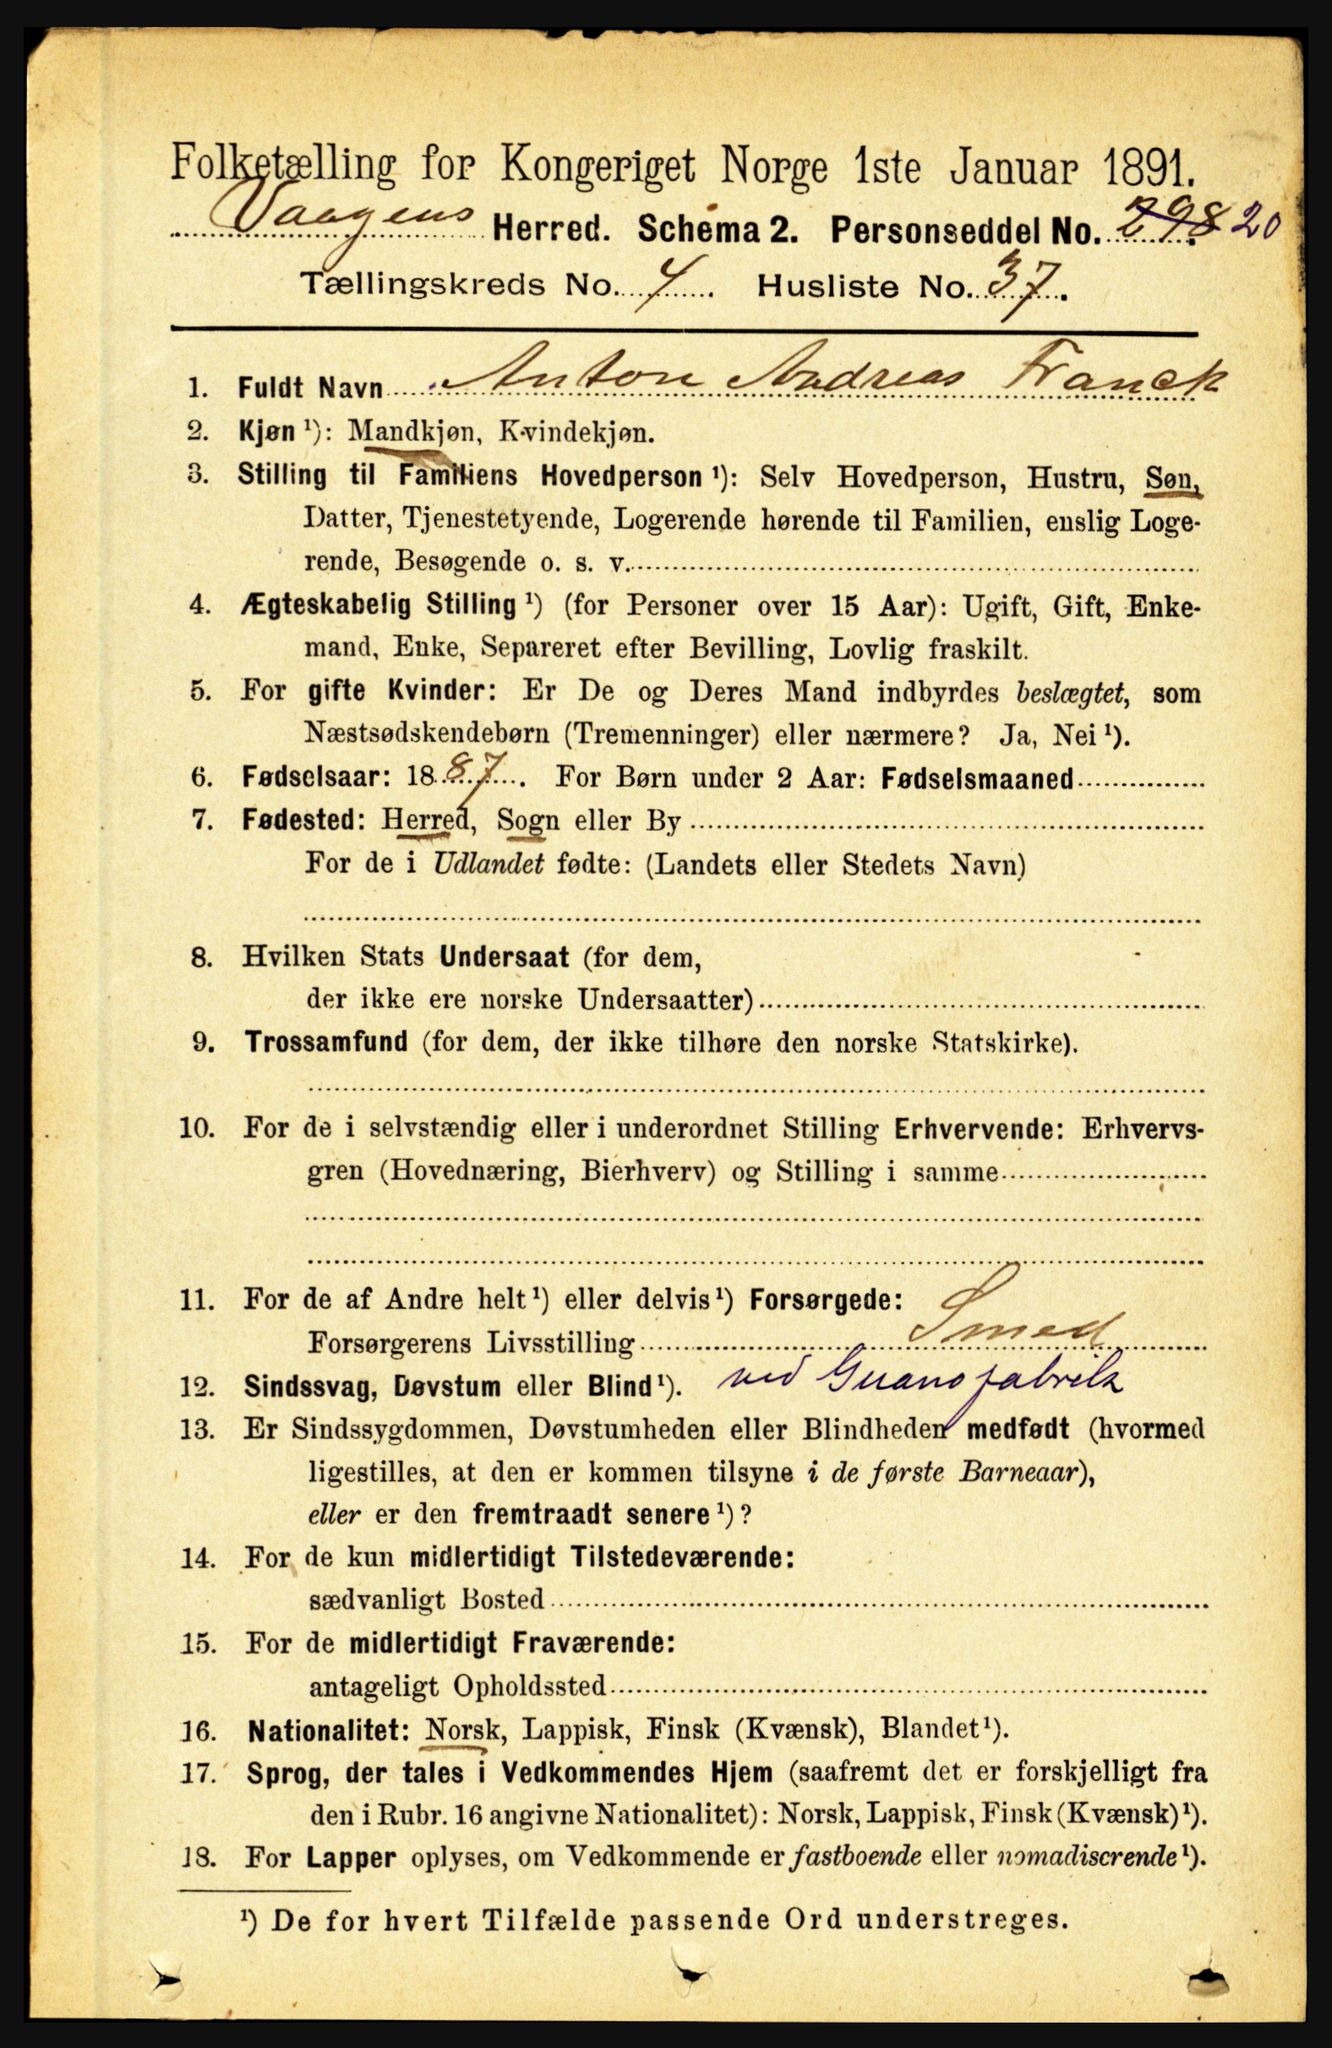 Folketælling for Kongeriget Norge 1ste Januar 1891.
Vaagens Herred. Schema 2. Personseddel No. 298 20
Tællingskreds No. 4. Husliste No. 37.
1. Fuldt Navn Anton Andreas Franck
2. Kjøn ¹): Mandkjøn, Kvindekjøn.
3. Stilling til Familiens Hovedperson ¹): Selv Hovedperson, Hustru, Søn,
Datter, Tjenestetyende, Logerende hørende til Familien, enslig Loge-
rende, Besøgende o. s. v.
4. Ægteskabelig Stilling ¹) (for Personer over 15 Aar): Ugift, Gift, Enke-
mand, Enke, Separeret efter Bevilling, Lovlig fraskilt.
5. For gifte Kvinder: Er De og Deres Mand indbyrdes beslægtet, som
Næstsødskendebørn (Tremenninger) eller nærmere? Ja, Nei ¹).
6. Fødselsaar: 1887. For Børn under 2 Aar: Fødselsmaaned
7. Fødested: Herred, Sogn eller By
For de i Udlandet fødte: (Landets eller Stedets Navn)
8. Hvilken Stats Undersaat (for dem,
der ikke ere norske Undersaatter)
9. Trossamfund (for dem, der ikke tilhøre den norske Statskirke).
10. For de i selvstændig eller i underordnet Stilling Erhvervende: Erhvervs-
gren (Hovednæring, Bierhverv) og Stilling i samme
11. For de af Andre helt ¹) eller delvis ¹) Forsørgede:
Forsørgerens Livsstilling Smed
12. Sindssvag, Døvstum eller Blind ¹). ved Guanofabrik
13. Er Sindssygdommen, Døvstumheden eller Blindheden medfødt (hvormed
ligestilles, at den er kommen tilsyne i de første Barneaar),
eller er den fremtraadt senere ¹)?
14. For de kun midlertidigt Tilstedeværende:
sædvanligt Bosted
15. For de midlertidigt Fraværende:
antageligt Opholdssted
16. Nationalitet: Norsk, Lappisk, Finsk (Kvænsk), Blandet ¹).
17. Sprog, der tales i Vedkommendes Hjem (saafremt det er forskjelligt fra
den i Rubr. 16 angivne Nationalitet): Norsk, Lappisk, Finsk (Kvænsk) ¹).
18. For Lapper oplyses, om Vedkommende er fastboende eller nomadiscrende ¹).
¹) De for hvert Tilfælde passende Ord understreges.